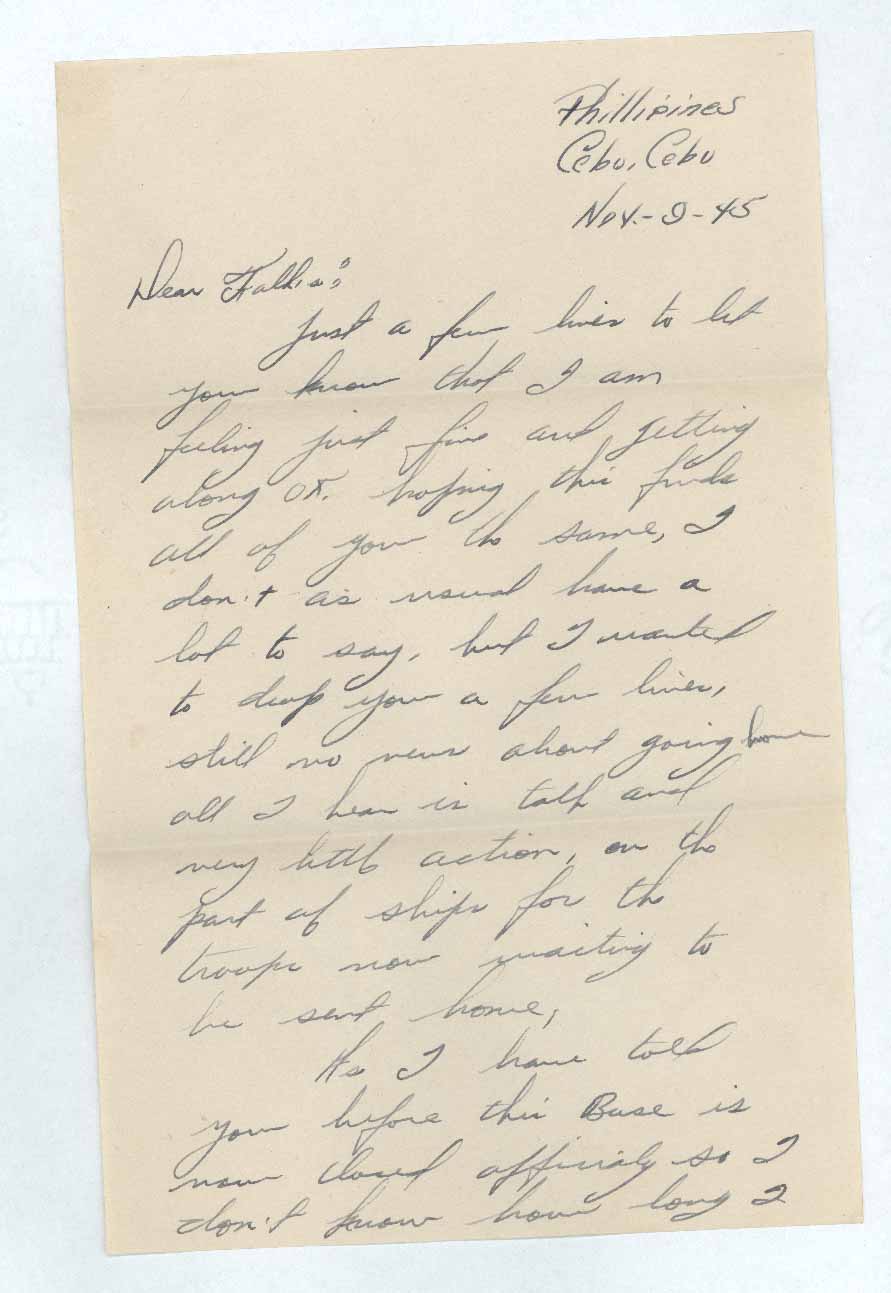 Phillipines
Cebu, Cebu
Nov.-2-45
Dear Folkes:
Just a few lines to let
you know that I am
feeling just fine and getting
along OK. hoping this finds
all of you the same, I
don't as usual have a
lot to say, but I wanted
to drop you a few lines,
still no news about going home
all I hear is talk and
very little action, on the
part of ships for the
troops now waiting to
be sent home,
As I have told
you before this Base is
now closed officialy so I
don't know how long I